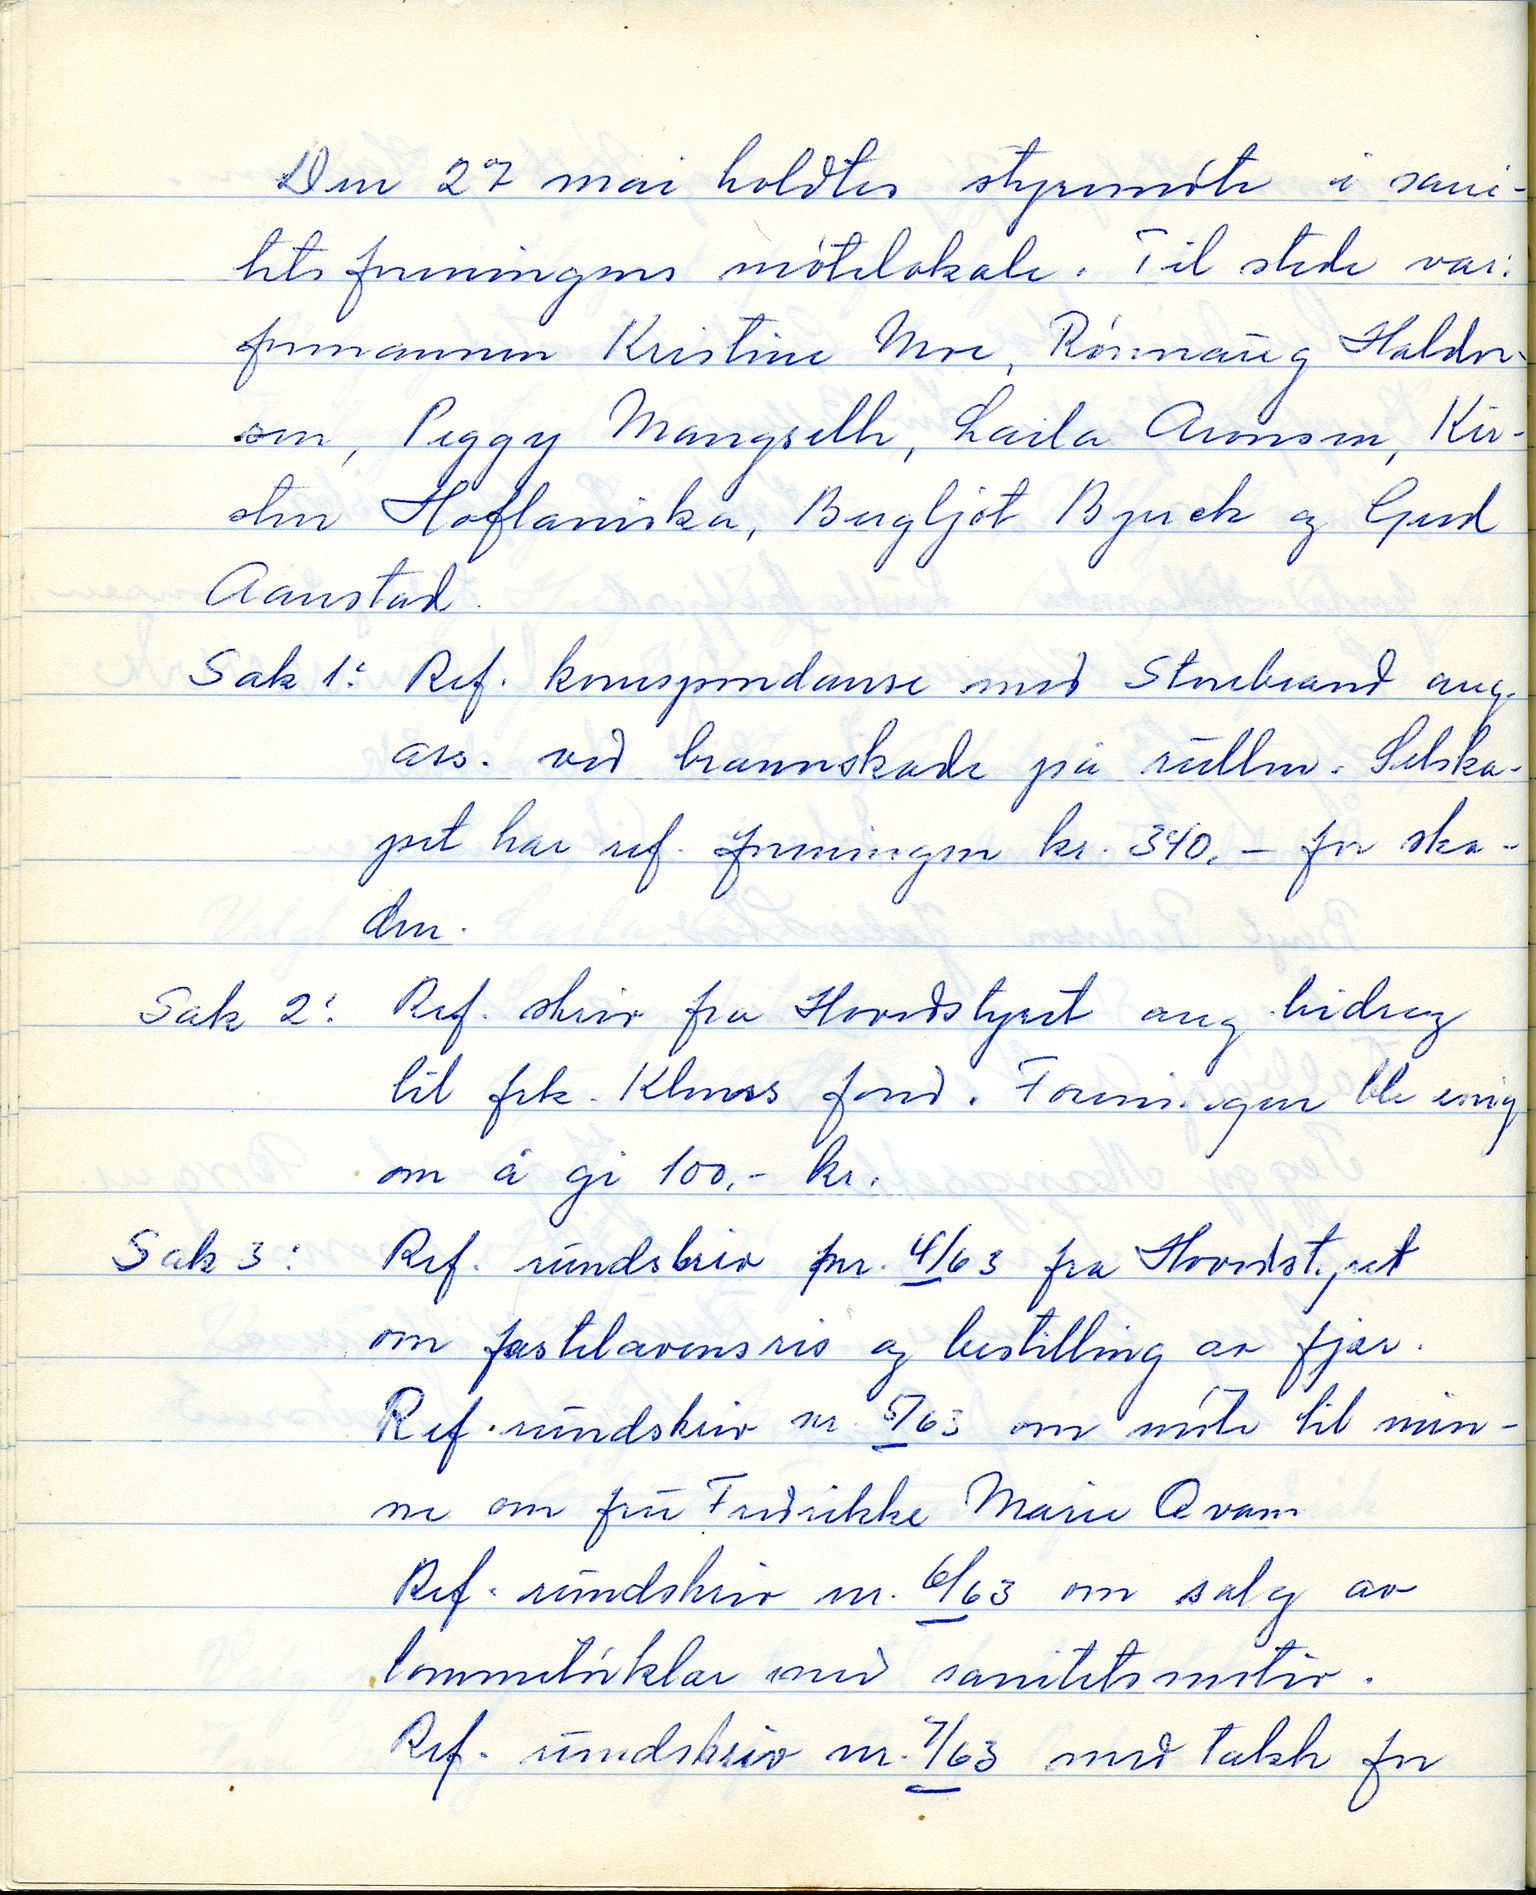 Den 27 mai holdtes styremöte i sani-
tetsforeningens mötelokale. Til stede var:
formannen Kristine Moe, Rönnaug Haldor-
sen, Peggy Mangseth, Laila Aronsen, Kir-
sten Hoflaniska, Bergljot Bjerck og Gerd
Aanstad.
Sak 1: Ref. korrespondanse med Storebrand ang.
ass. ved brannskade på rullen. Selska-
pet har ref. foreningen kr. 340.- for ska-
den.
Sak 2: Ref. skriv fra Hovedstyret ang bidrag
til frk. Kless fond. Foreningen ble enig
om å gi 100.- kr.
Sak 3: Ref. rundskriv nr. 4/63 fra Hovedstyret
om fastelavensris og bestilling av fjær.
Ref. rundskriv nr. 5/63 om möte til min-
ne om fru Fredrikke Marie Qvam
Ref. rundskriv nr. 6/63 om salg av
lommetörklær med sanitetsmotiv.
Ref. rundskriv nr. 7/63 med takk for